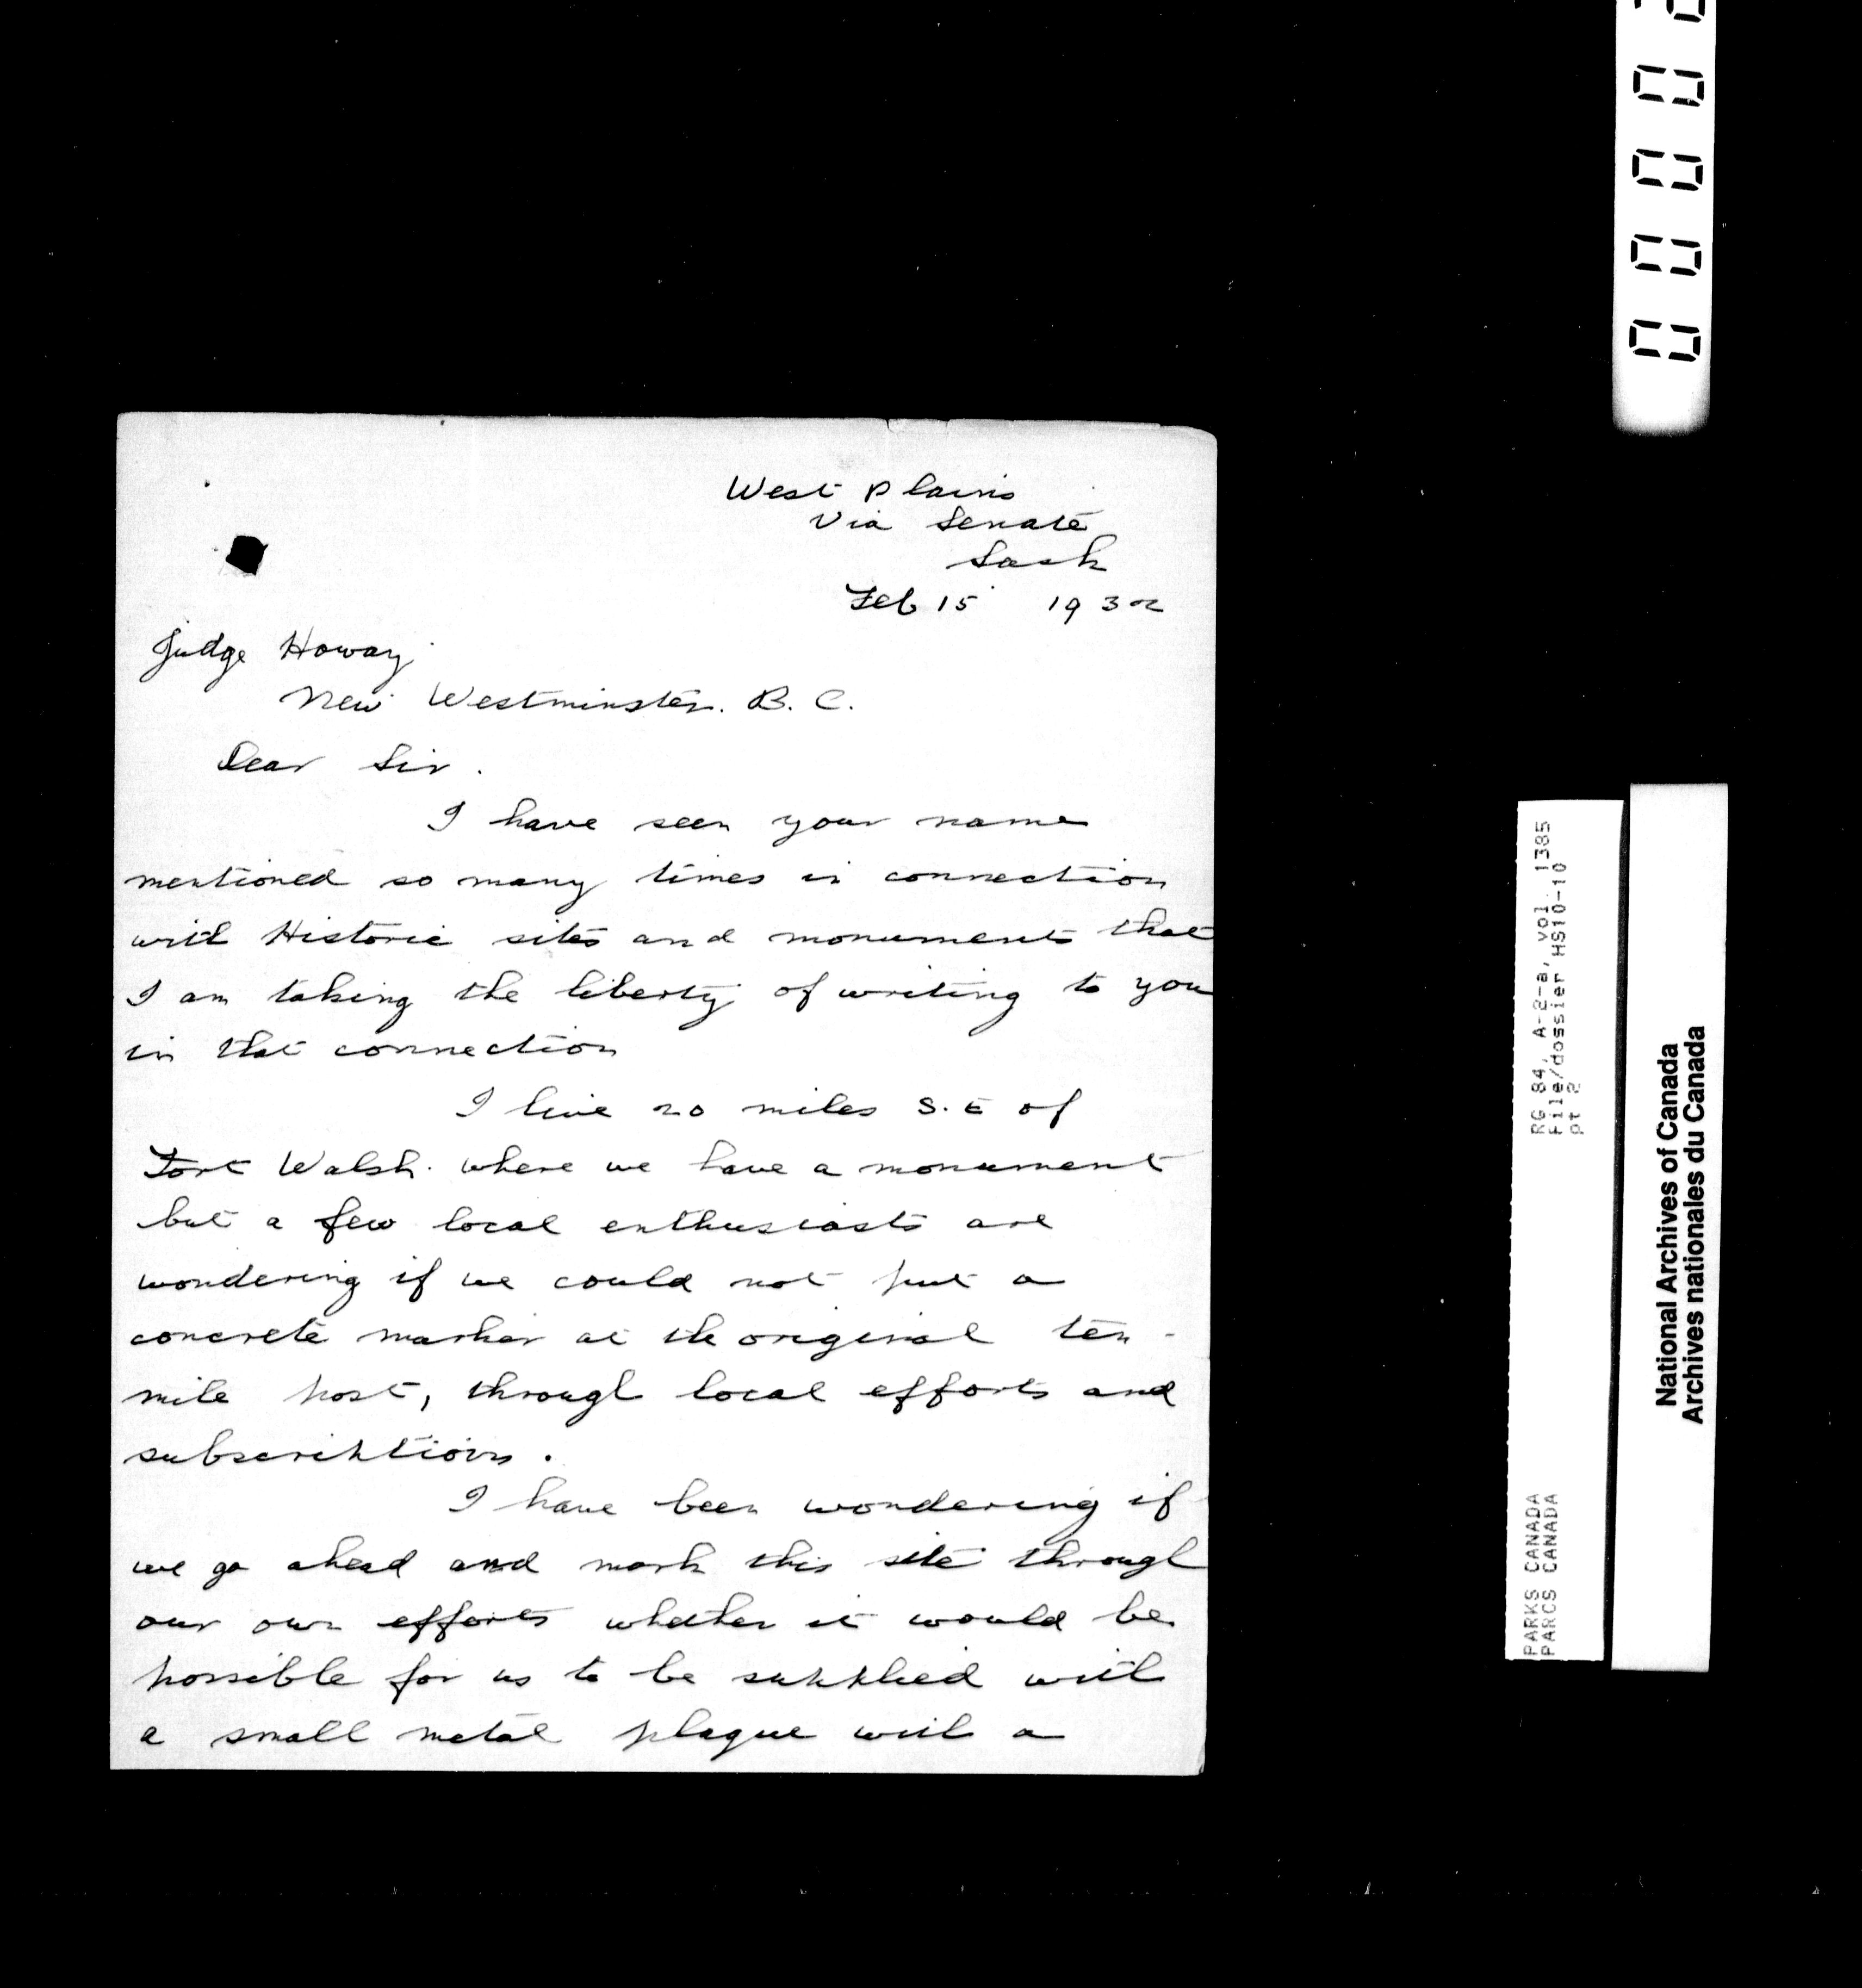 West Plains
Via Senate
Sask
Feb 15 1932
Judge Howay
New Westminster. B. C.
Dear Sir.
I have seen your name
mentioned so many times in connection
with Historic sites and monuments that
I am taking the liberty of writing to you
in that connection
I live 20 miles S.E of
Fort Walsh. where we have a monument
but a few local enthusiasts are
wondering if we could not put a
concrete marker at the original ten-
mile post, through local efforts and
subscriptions.
I have been wondering if
we go ahead and mark this site through
our own efforts whether it would be
possible for us to be supplied with
a small metal plaque with a
0000
RG 84, A-2-a, vol. 1385
File/dossier HS10-10
pt 2
PARKS CANADA
PARCS CANADA
National Archives of Canada
Archives nationales du Canada